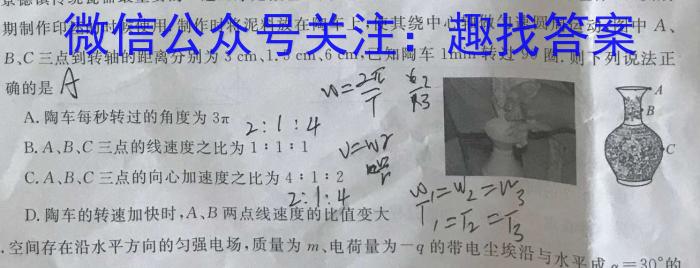 微信公众号关注：趣找答案
期制作
中 A、
B、C 三点到转轴的距离分别为 3 cm、1.5 cm、6 cm,已知陶车 1min 转过 90 圈.则下列说法正
确的是 A
A. 陶车每秒转过的角度为 3π
2:1:4
B. A、B、C 三点的线速度之比为 1∶1∶1
C. A、B、C 三点的向心加速度之比为 4∶1∶2
2:1:4
D. 陶车的转速加快时,A、B 两点线速度的比值变大
w=2π/T
v=wr
w1=w2=w3
T1=T2=T3
A
B
C
.空间存在沿水平方向的匀强电场,质量为 m、电荷量为－q 的带电尘埃沿与水平成 α=30°的